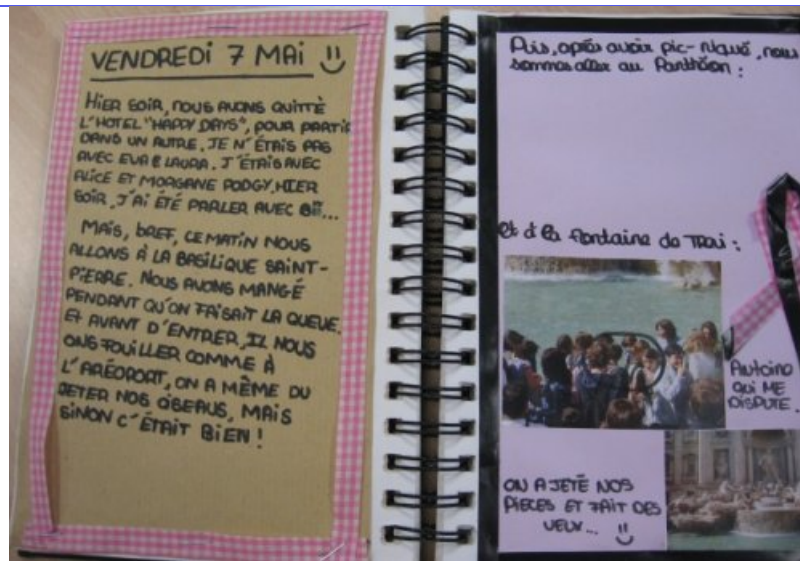 VENDREDI 7 MAI
HIER SOIR, NOUS AVONS QUITTÉ
L'HOTEL "HAPPY DAYS", POUR PARTIR
DANS UN AUTRE. JE N'ÉTAIS PAS
AVEC EVA & LAURA. J'ÉTAIS AVEC
ALICE ET MORGANE PODGY. HIER
SOIR, J'AI ÉTÉ PARLER AVEC
MAIS, BREF, CE MATIN NOUS
ALLONS À LA BASILIQUE SAINT-
PIERRE. NOUS AVONS MANGÉ
PENDANT QU'ON FAISAIT LA QUEUE.
ET AVANT D'ENTRER, IL NOUS
ONS FOUILLER COMME À
L'ARÉOPORT, ON A MÊME DU
JETER NOS CISEAUS, MAIS
SINON C'ÉTAIT BIEN !
Puis, après avoir pic-niqué, nous
sommes aller au Panthéon :
et à la fontaine de Trevi :
Antoine
QUI ME
DISPUTE.
ON A JETÉ NOS
PIECES ET FAIT DES
VEUX...